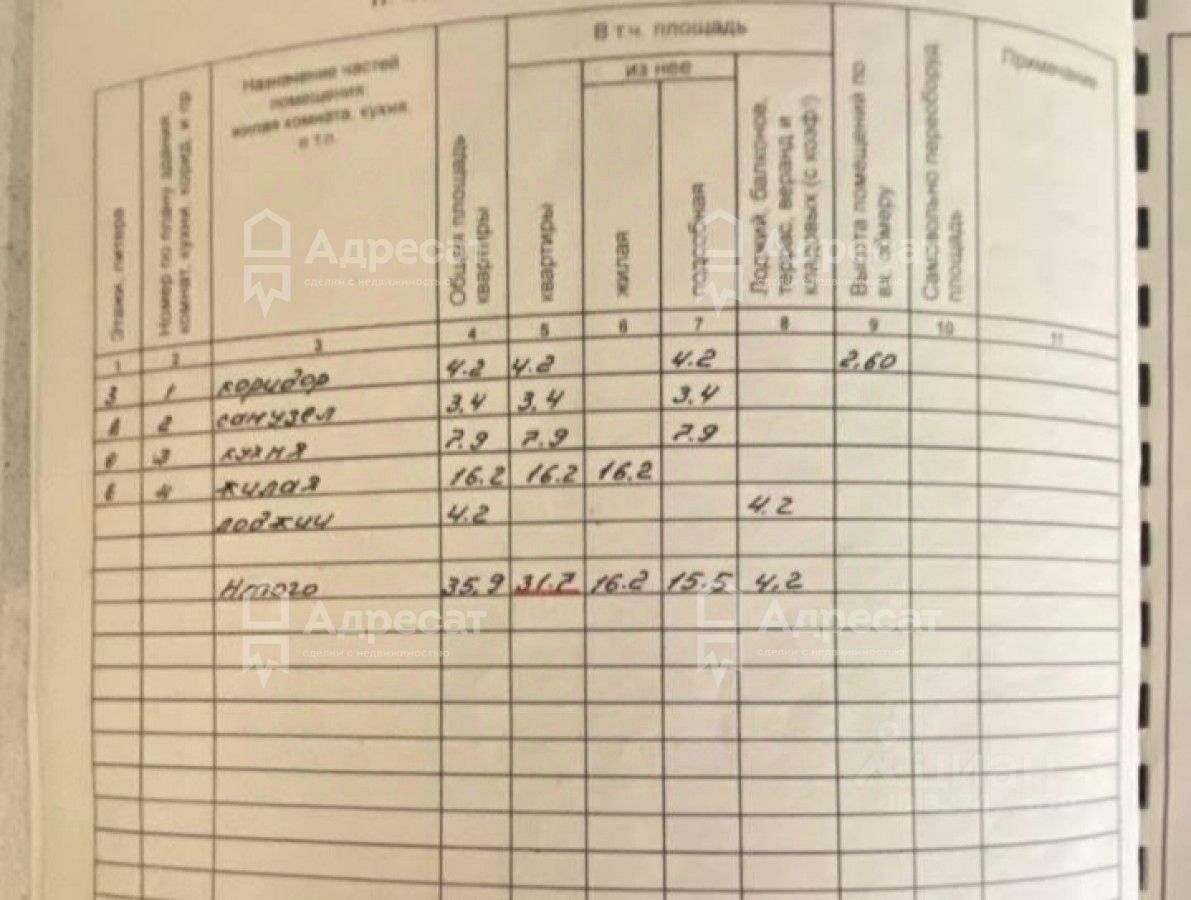 В т.ч. площадь
из нее
Этажи, литера
Номер по плану здания,
комнат, кухни, корид. и пр
Назначение частей
помещения:
жилая комната, кухня,
и т.п.
Общая площадь
квартиры
квартиры
жилая
подсобная
Лоджий, балконов,
террас, веранд и
кладовых (с коэф.)
Высота помещений по
вн. обмеру
Самовольно переоборуд.
площадь
Примечание
1 2 3 4 5 6 7 8 9 10 11
3 1 коридор 4.2 4.2 4.2 2,60
2 санузел 3,4 3,4 3,4
3 кухня 7.9 7.9 7.9
4 жилая 16.2 16.2 16.2
лоджии 4.2 4.2
Итого 35,9 31.7 16.2 15.5 4,2
Адресат
сделки с недвижимостью
Адресат
сделки с недвижимостью
Адресат
сделки с недвижимостью
Адресат
сделки с недвижимостью